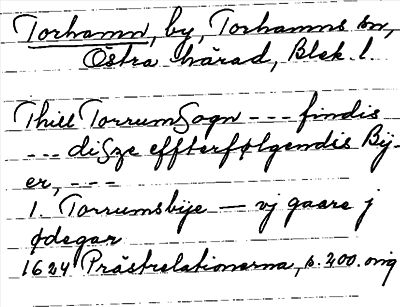 Torhamn, by, Torhamns sn,
Östra härad, Blek. l.
Thill Torrum Sogn --- findis
--- disze effterfølgendis Bij-
er, ---
1. Torrumsbije — vj gaare j
ødegar
1624 Prästrelationerna, s. 200. orig